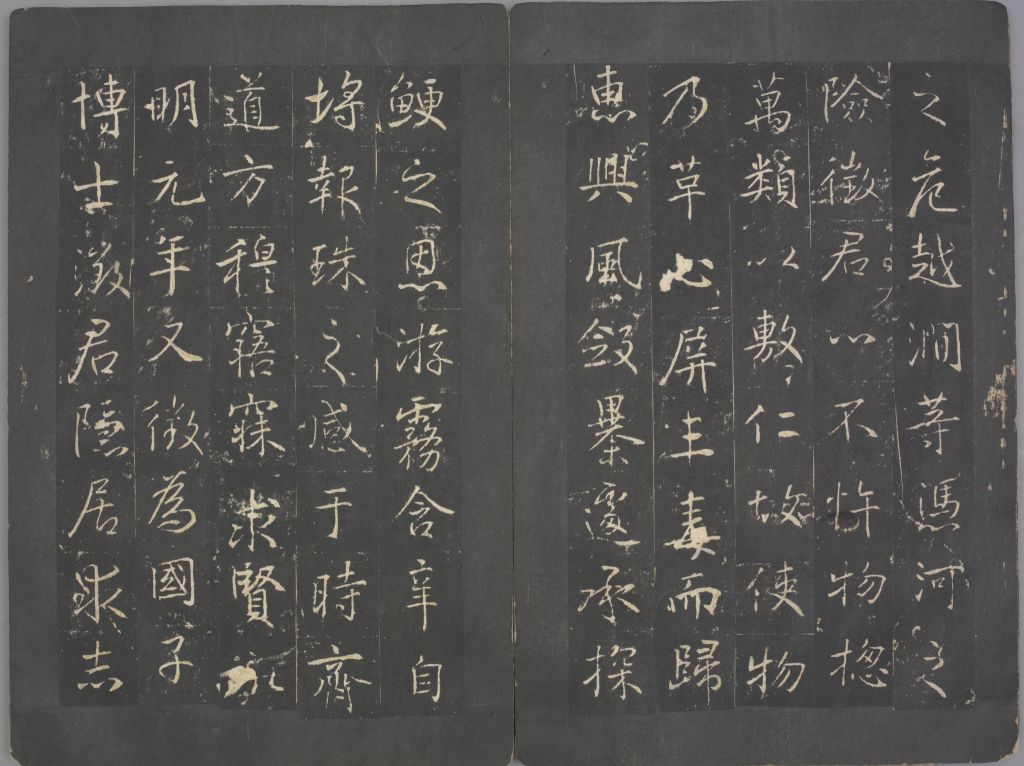 之危越澗等馮河之
險徵君心不忤物揔
萬類以敷仁故使物
乃革心屏生毒而歸
惠興風斂暴遽承探
鯁之恩游霧含辛自
埒報珠之感于時齊
道方穆寤寐求賢永
明元年又徵為國子
博士徵君隱居求志